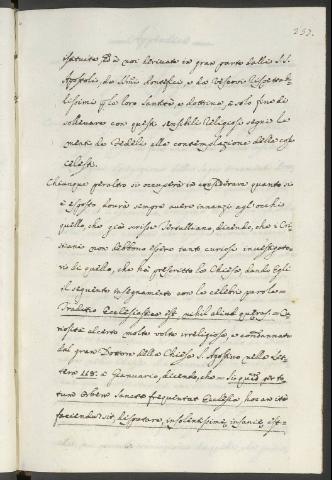 257.
istituito, ed è a noi derivato in gran parte dalli S.S.
Apostoli, da Som̃i Pontefici, e da Vescovi rispettab
lissimi p la loro Santità, e dottrina, a solo fine di
sollevare con questi sensibili religiosi segni la
mente de Fedeli alla contemplazione delle cose
celesti.
Chiunque peraltro si occuperà in considerare quanto si
è esposto dovrà sempre avere innanzi agl'occhi
quello, che già scrisse Tertulliano, dicendo, che i Cri
stiani non debbono essere tanto curiosi investigato
ri di quello, che hà prescritto la Chiesa, dando Egli
il seguente insegnamento con le celebri parole =
Traditio Ecclesiastica est, nihil aliud quæras = Cu
riosità al certo molte volte irreligiosa, e condannata
dal gran Dottore della Chiesa S. Agostino nella Let
tera 118. a Gennario, dicendo, che = Si quid per to
tum Orbem Sancta frequentat Ecclesia, hoc an ita
faciendum sit, disputare, insolentissimæ insaniæ est =